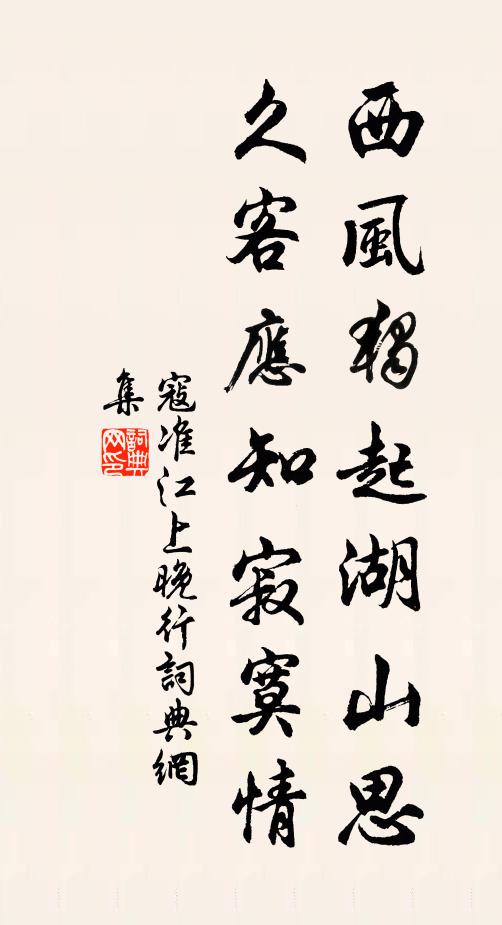 西風獨起湖山思
久客應知寂寞情
寇准江上晚行詞典網
集
詞典
网印